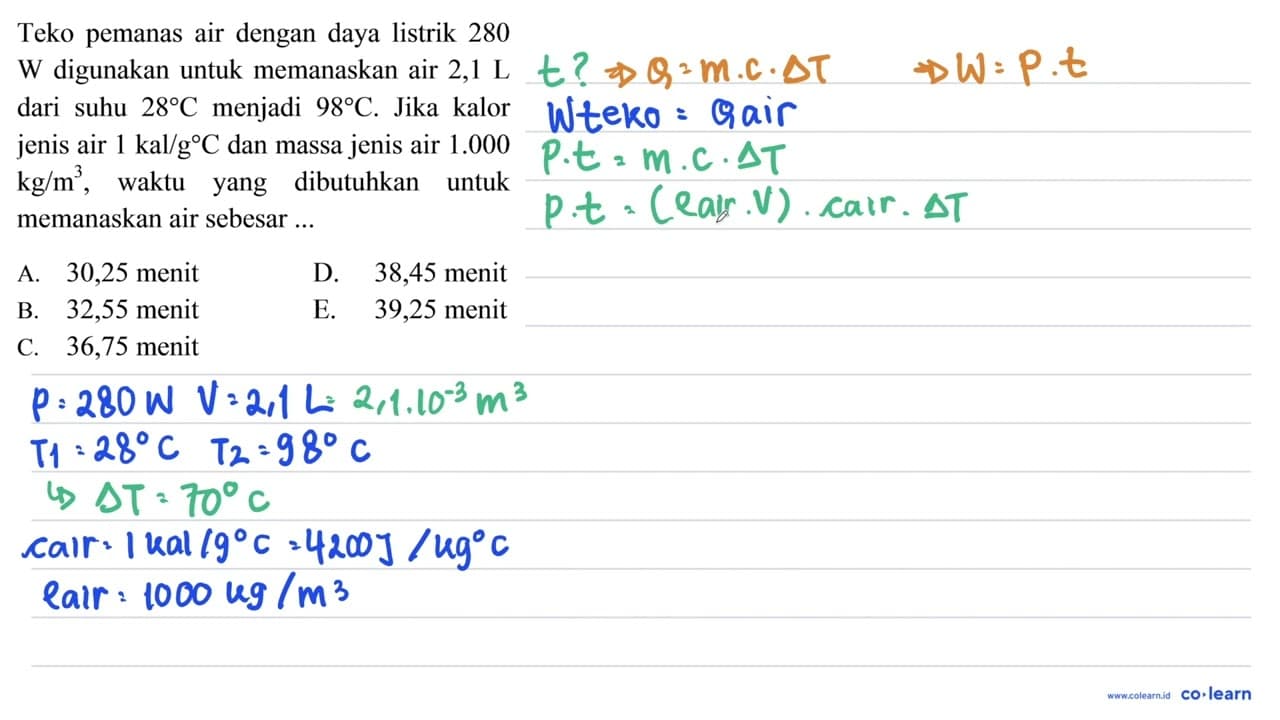 Teko pemanas air dengan daya listrik 280
W digunakan untuk memanaskan air 2,1 L
dari suhu 28°C menjadi 98°C. Jika kalor
jenis air 1 kal/g°C dan massa jenis air 1.000
kg/m³, waktu yang dibutuhkan untuk
memanaskan air sebesar ...
A. 30,25 menit D. 38,45 menit
B. 32,55 menit E. 39,25 menit
C. 36,75 menit
t? ⇒ Q = m.c.ΔT ⇒ W = P.t
Wteko = Qair
P.t = m.c.ΔT
P.t = (ρair.V).cair.ΔT
P = 280 W V = 2,1 L = 2,1.10⁻³ m³
T1 = 28°C T2 = 98°C
↳ ΔT = 70°C
cair = 1 kal/g°C = 4200 J/kg°C
ρair = 1000 kg/m³
www.colearn.id co·learn